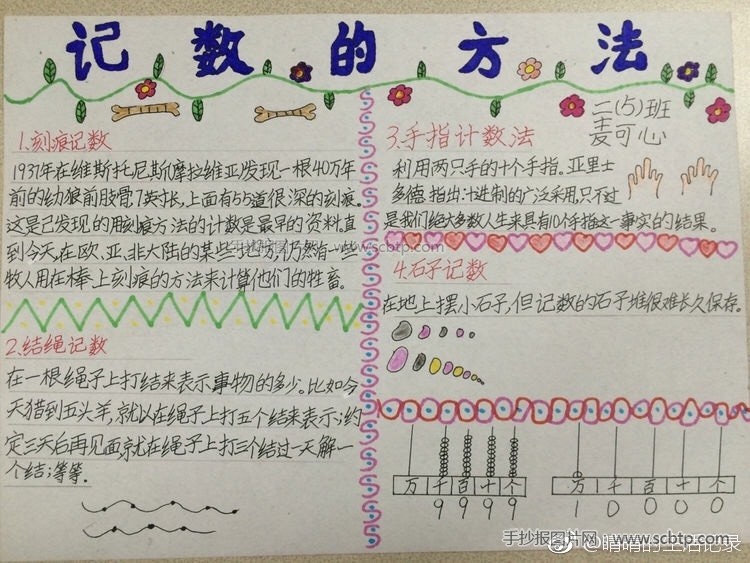 记数的方法
二(5)班
麦可心
1.刻痕记数
1937年在维斯托尼斯摩拉维亚发现一根40万年
前的幼狼前肢骨7英寸长,上面有55道很深的刻痕。
这是已发现的用刻痕方法的计数是最早的资料,直
到今天,在欧、亚、非大陆的某些地方,仍然有一些
牧人用在棒上刻痕的方法来计算他们的牲畜。
2.结绳记数
在一根绳子上打结来表示事物的多少。比如今
天猎到五头羊,就以在绳子上打五个结来表示;约
定三天后再见面,就在绳子上打三个结过一天解一
个结;等等。
3.手指计数法
利用两只手的十个手指。亚里士
多德指出:十进制的广泛采用,只不过
是我们绝大多数人生来具有10个手指这一事实的结果。
4.石子记数
在地上摆小石子,但记数的石子堆很难长久保存。
万千百十个
9999
万千百十个
10000
手抄报图片网 www.scbtp.com
手抄报图片网 www.scbtp.com
@晴晴的生活记录